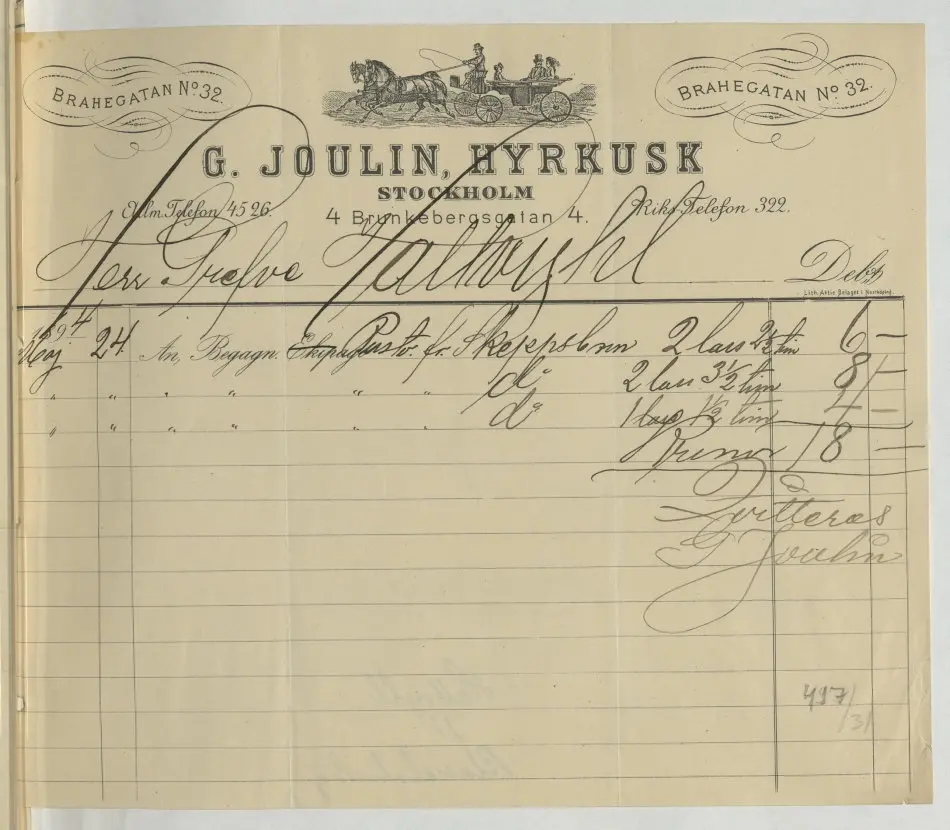 BRAHEGATAN No 32.
BRAHEGATAN No 32.
G. JOULIN, HYRKUSK
STOCKHOLM
Allm. Telefon 4526.
4 Brunkebergsgatan 4.
Riks Telefon 322.
Herr Grefve Hallwyhl Debet
Lith. Aktie Bolaget i Norrköping.
1894
Maj 24 An, Begagn. Ekipage fr. Skeppsbron 2 lass 2½ tim 6 —
" " " " " " do 2 lass 3½ tim 8 —
" " " " " " do 1 lass 1½ tim 4 —
18 —
Qvitteras
G Joulin
497/31